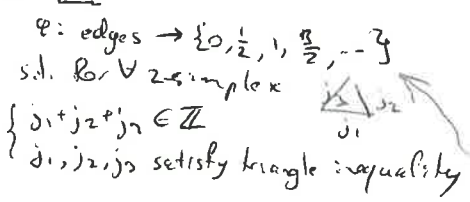 φ: edges → {0, 1/2, 1, 3/2, ...}
s.t. for ∀ 2-simplex
j₃ j₂
j₁
{ j₁+j₂+j₃ ∈ ℤ
j₁, j₂, j₃ satisfy triangle inequality